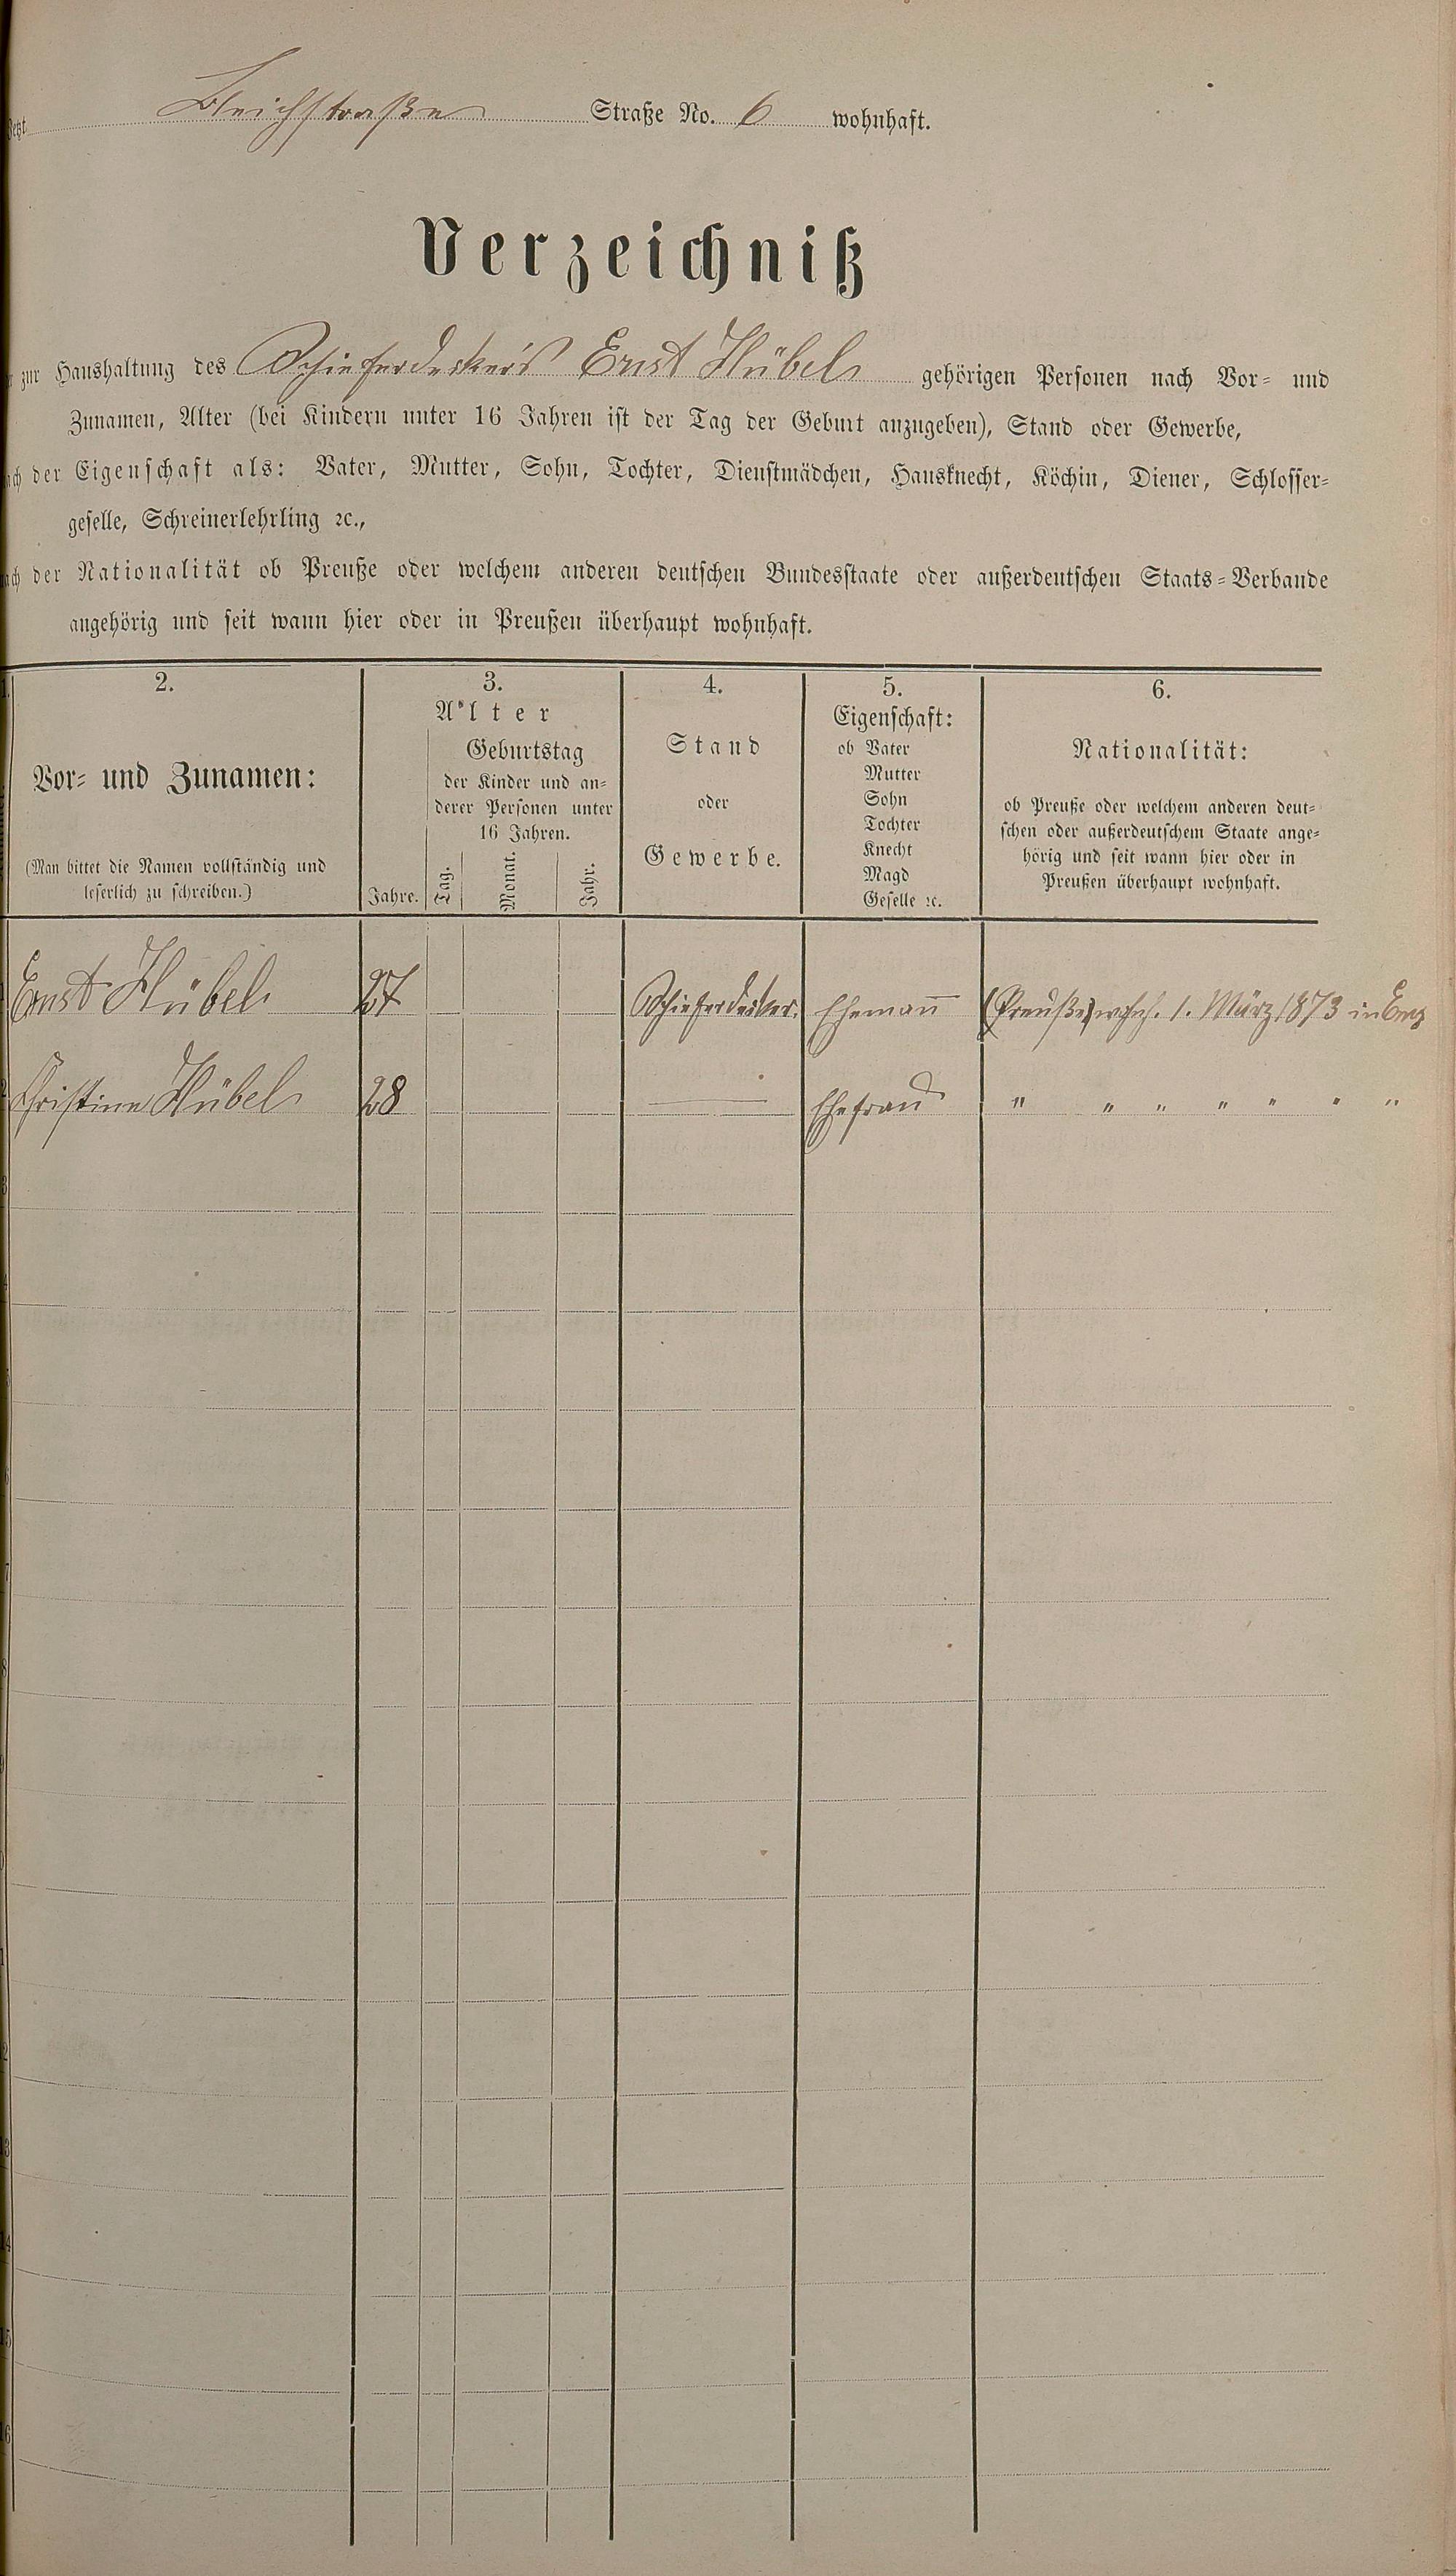 Jetzt Bleichstraße Straße No. 6 wohnhaft.
Verzeichniß
zur Haushaltung des Schieferdeckers Ernst Hübel gehörigen Personen nach Vor- und
Zunamen, Alter (bei Kindern unter 16 Jahren ist der Tag der Geburt anzugeben), Stand oder Gewerbe,
der Eigenschaft als: Vater, Mutter, Sohn, Tochter, Dienstmädchen, Hausknecht, Köchin, Diener, Schlosser-
geselle, Schreinerlehrling ꝛc.,
der Nationalität ob Preuße oder welchem anderen deutschen Bundesstaate oder außerdeutschen Staats-Verbande
angehörig und seit wann hier oder in Preußen überhaupt wohnhaft.
2.
Vor- und Zunamen:
(Man bittet die Namen vollständig und
leserlich zu schreiben.)
3.
Alter
Geburtstag
der Kinder und an-
derer Personen unter
16 Jahren.
Jahre. Tag. Monat. Jahr.
4.
Stand
oder
Gewerbe.
5.
Eigenschaft:
ob Vater
Mutter
Sohn
Tochter
Knecht
Magd
Geselle ꝛc.
6.
Nationalität:
ob Preuße oder welchem anderen deut-
schen oder außerdeutschem Staate ange-
hörig und seit wann hier oder in
Preußen überhaupt wohnhaft.
Ernst Hübel 27 Schieferdecker. Ehemann (Preuße) wohnh. 1. März 1873 in Ems
Christine Hübel 28 — Ehefrau " " " " " " "